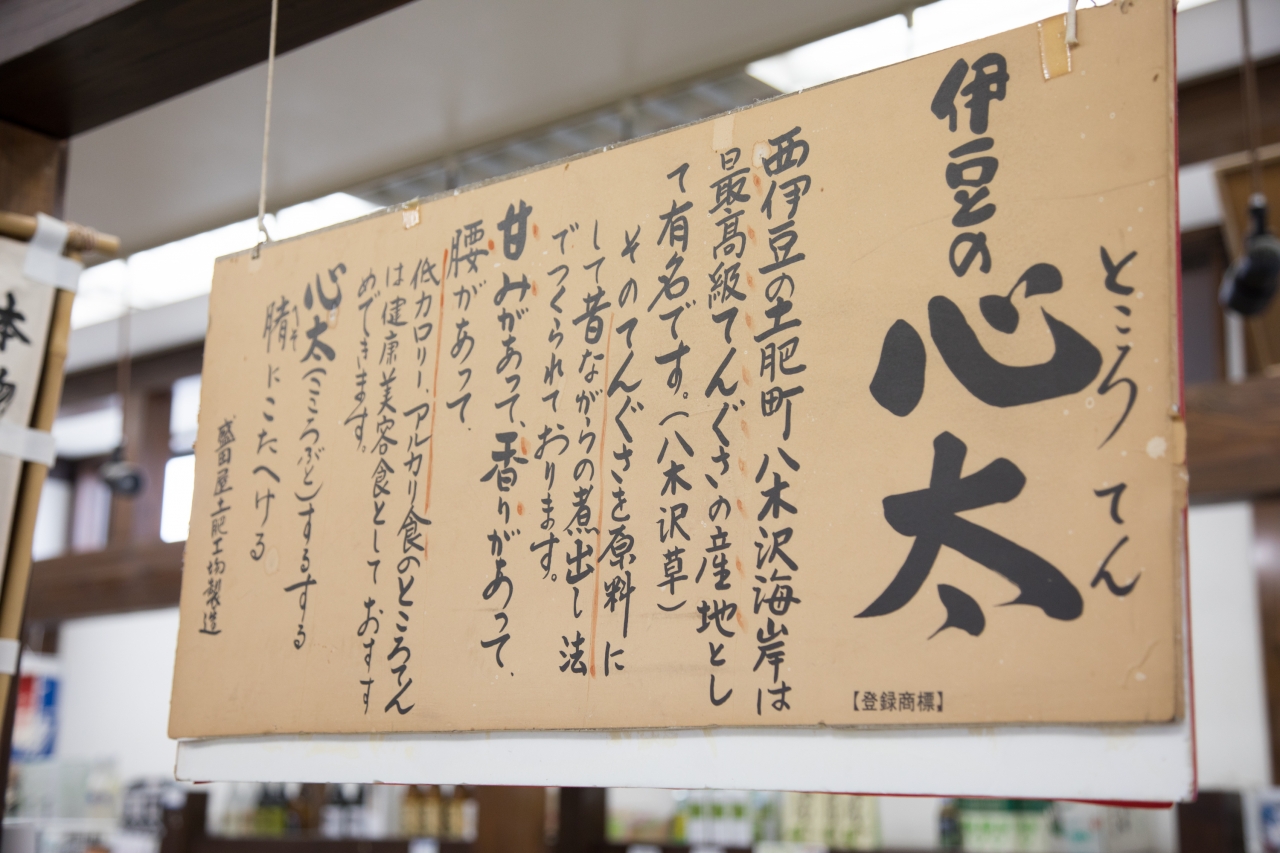 伊豆との
心太
ところてん
【登録商標】
西伊豆の土肥町八木沢海岸は
最高級てんぐさの産地とし
て有名です。(八木沢草)
そのてんぐさを原料に
して昔ながらの煮出し法
でつくられております。
甘みがあって、香りがあって、
腰があって、
低カロリー、アルカリ食のところてん
は健康美容食としておすす
めできます。
心太(こころぶと)するする
臍にこたへける
へそ
盛田屋土肥工場製造
本